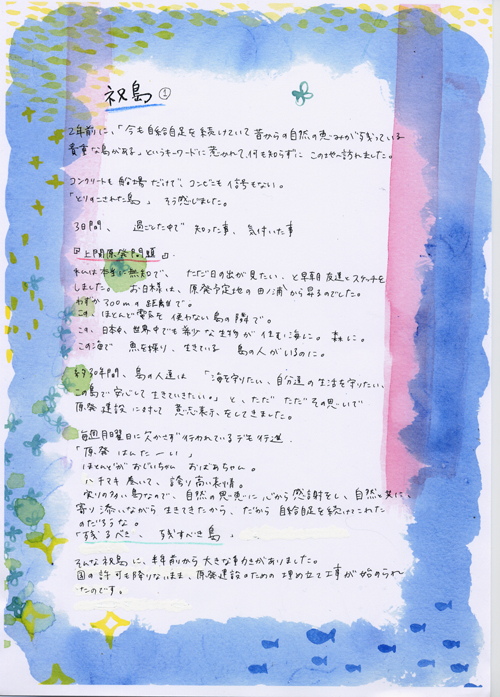 祝島 ①
2年前に、「今も自給自足を続けていて昔からの自然の恵みが残っている
貴重な島がある」というキーワードに惹かれて、何も知らずに この地へ訪れました。
コンクリートも船着場だけで、コンビニも信号もない。
「とりのこされた島」 そう感じました。
3日間、 過ごした中で 知った事、気付いた事
上関原発問題
私は本当に無知で、 ただ日の出が見たい、と早朝友達とスケッチを
しました。 お日様は、原発予定地の田ノ浦から昇るのでした。
わずか300mの距離で。
この、ほとんど電気を使わない島の隣で。
この、日本中、世界中でも希少な生物が住む海に。森に。
この海で 魚を採り、生きている 島の人がいるのに。
約30年間、島の人達は 「海を守りたい、自分達の生活を守りたい、
この島で安心して生きていきたい。」と、ただ ただその思いで
原発建設に対して 意志表示をしてきました。
毎週月曜日に欠かさず行われているデモ行進。
「原発 はんたーい」
ほとんどがおじいちゃん おばあちゃん。
ハチマキ巻いて、誇り高い表情。
実りの多い島なので、自然の恩恵に心から感謝をし、自然と共に、
寄り添いながら生きてきたから、だから自給自足を続けこれた
のだろうな。
「残るべき、 残すべき島 」
そんな祝島に、半年前から大きな動きがありました。
国の許可も降りないまま、原発建設のための埋め立て工事が始められ
たのです。